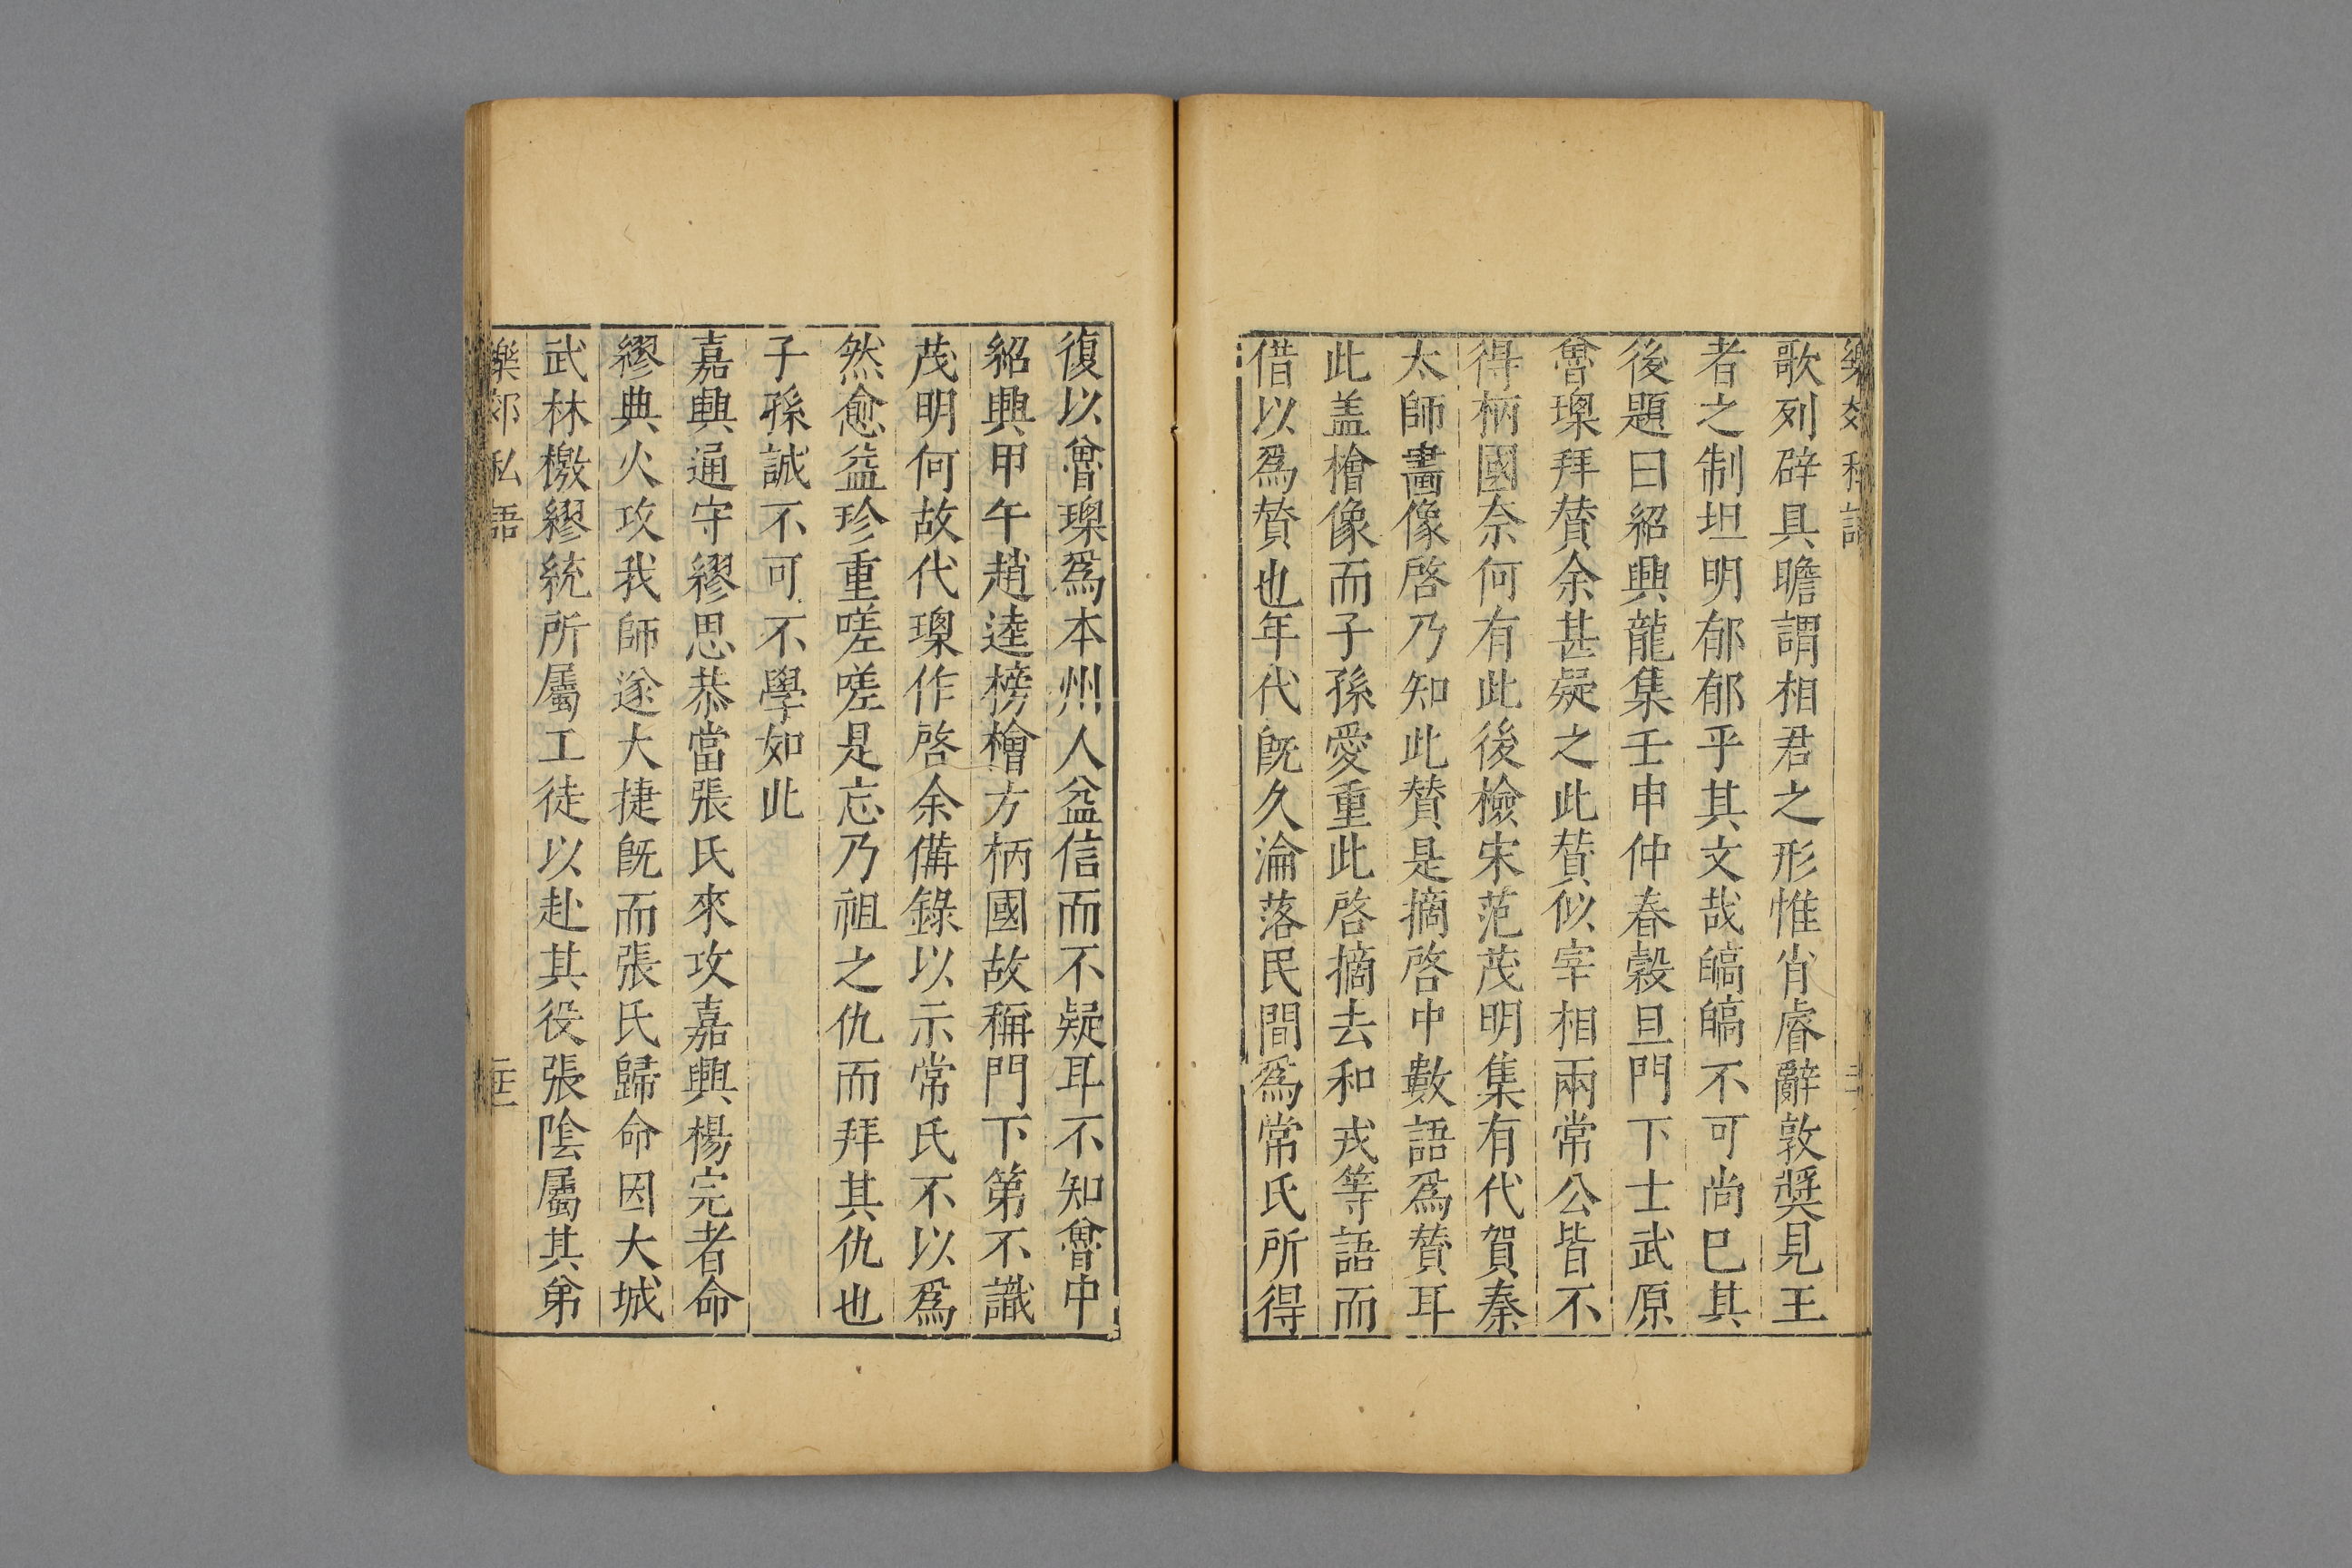 樂郊私語
歌列辟具瞻謂相君之形惟肖睿辭敦奬見王
者之制坦明郁郁乎其文哉皜皜不可尚巳其
後題曰紹興龍集壬申仲春穀旦門下士武原
魯璪拜賛余甚疑之此賛似宰相兩常公皆不
得柄國奈何有此後檢宋范茂明集有代賀秦
太師畵像啓乃知此賛是摘啓中數語爲賛耳
此盖檜像而子孫愛重此啓摘去和戎等語而
借以爲賛也年代旣久淪落民間爲常氏所得
復以魯璪爲本州人益信而不疑耳不知魯中
紹興甲午趙逵榜檜方柄國故稱門下第不識
茂明何故代璪作啓余備錄以示常氏不以爲
然愈益珍重嗟嗟是忘乃祖之仇而拜其仇也
子孫誠不可不學如此
嘉興通守繆思恭當張氏來攻嘉興楊完者命
繆典火攻我師遂大捷旣而張氏歸命因大城
武林檄繆統所屬工徒以赴其役張陰屬其弟
樂郊私語